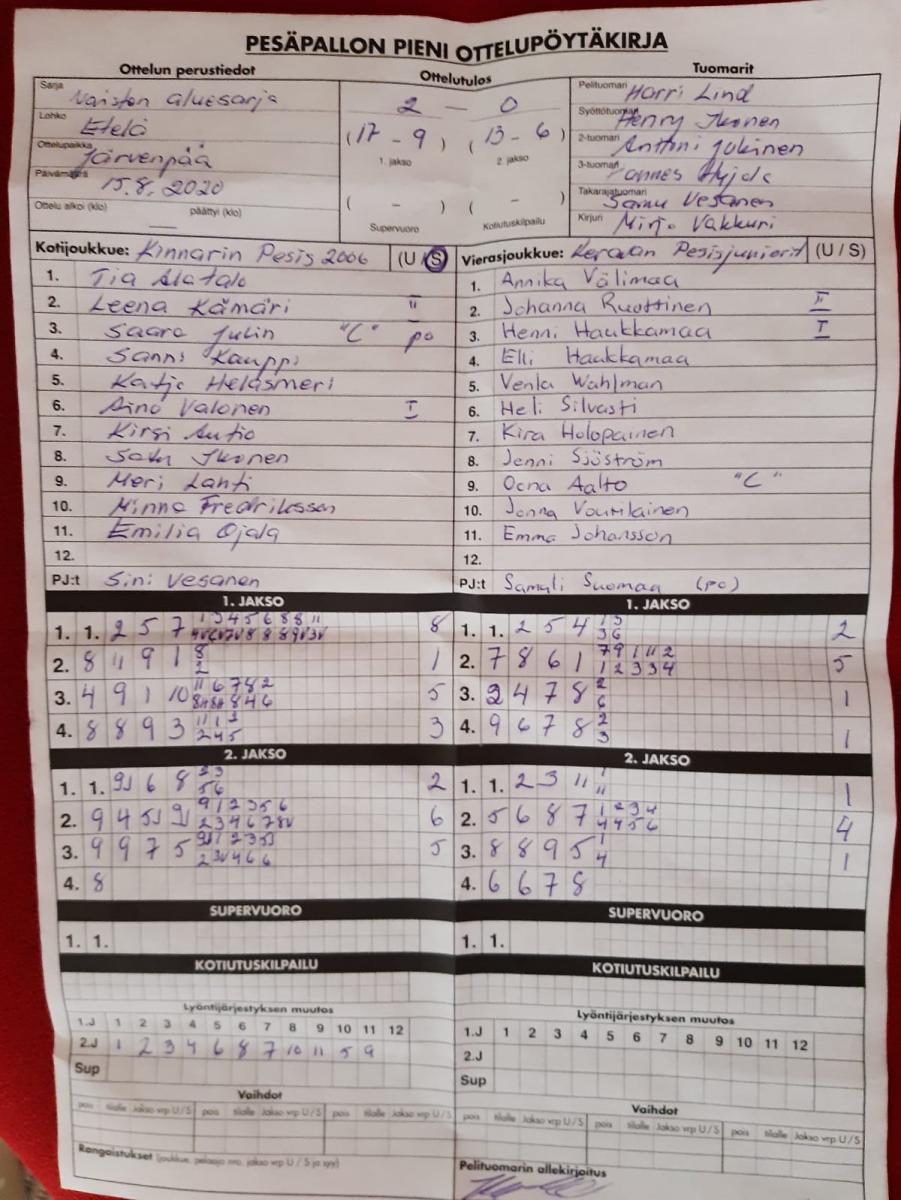 PESÄPALLON PIENI OTTELUPÖYTÄKIRJA
Ottelun perustiedot
Sarja Naisten aluesarja
Lohko Etelä
Ottelupaikka Järvenpää
Päivämäärä 15.8.2020
Ottelu alkoi (klo) päättyi (klo)
Ottelutulos
2 - 0
(17 - 9) (13 - 6)
1. jakso 2. jakso
( - ) ( - )
Supervuoro Kotiutuskilpailu
Tuomarit
Pelituomari Harri Lind
Syöttötuomari Henry Ikonen
2-tuomari Anttoni Jukinen
3-tuomari
Takarajatuomari Samu Vesanen
Kirjuri Mirjo Vakkuri
Kotijoukkue: Kinnarin Pesis 2006 (U/S)
1. Tia Alatalo
2. Leena Kämäri II
3. Saara Julin "C" po
4. Sanni Kauppi
5. Katja Heläsmeri
6. Aino Valonen I
7. Kirsi Autio
8. Satu Ikonen
9. Meri Lahti
10. Minna Fredriksson
11. Emilia Ojala
12.
PJ:t Sini Vesanen
Vierasjoukkue: Keravan Pesisjuniorit (U/S)
1. Annika Välimaa
2. Johanna Ruottinen II
3. Henni Haukkamaa I
4. Elli Haukkamaa
5. Venla Wahlman
6. Heli Silvasti
7. Kira Holopainen
8. Jenni Sjöström
9. Oona Aalto "C"
10. Jonna Voutilainen
11. Emma Johansson
12.
PJ:t Samuli Suomaa (po)
1. JAKSO
1. 1. 2 5 7 1 3 4 5 6 8 8 11 8
2. 8 11 9 1 8 2 1
3. 4 9 1 10 11 6 7 8 2 5
4. 8 8 9 3 11 1 3 2 4 5 3
2. JAKSO
1. 1. 9J 6 8 2 3 5 6 2
2. 9 4 5J 9J 9 1 2 3 5 6 2 3 4 6 7 8V 6
3. 9 9 7 5 9J 1 2 3 5J 2 3V 4 6 6 5
4. 8
SUPERVUORO
1. 1.
KOTIUTUSKILPAILU
Lyöntijärjestyksen muutos
1.J 1 2 3 4 5 6 7 8 9 10 11 12
2.J 1 2 3 4 6 8 7 10 11 5 9
Sup
Vaihdot
pois tilalle Jakso vrp U/S pois tilalle Jakso vrp U/S pois tilalle Jakso vrp U/S
Rangaistukset (joukkue, pelaaja nro, jakso vrp U/S ja syy)
1. JAKSO
1. 1. 2 5 4 1 3 3 6 2
2. 7 8 6 1 7 9 1 11 2 1 2 3 3 4 5
3. 2 4 7 8 2 6 1
4. 9 6 7 8 2 3 1
2. JAKSO
1. 1. 2 3 11 1 11 1
2. 5 6 8 7 1 2 3 4 4 4 5 6 4
3. 8 8 9 5 1 4 1
4. 6 6 7 8
SUPERVUORO
1. 1.
KOTIUTUSKILPAILU
Lyöntijärjestyksen muutos
1.J 1 2 3 4 5 6 7 8 9 10 11 12
2.J
Sup
Vaihdot
pois tilalle Jakso vrp U/S pois tilalle Jakso vrp U/S pois tilalle Jakso vrp U/S
Pelituomarin allekirjoitus